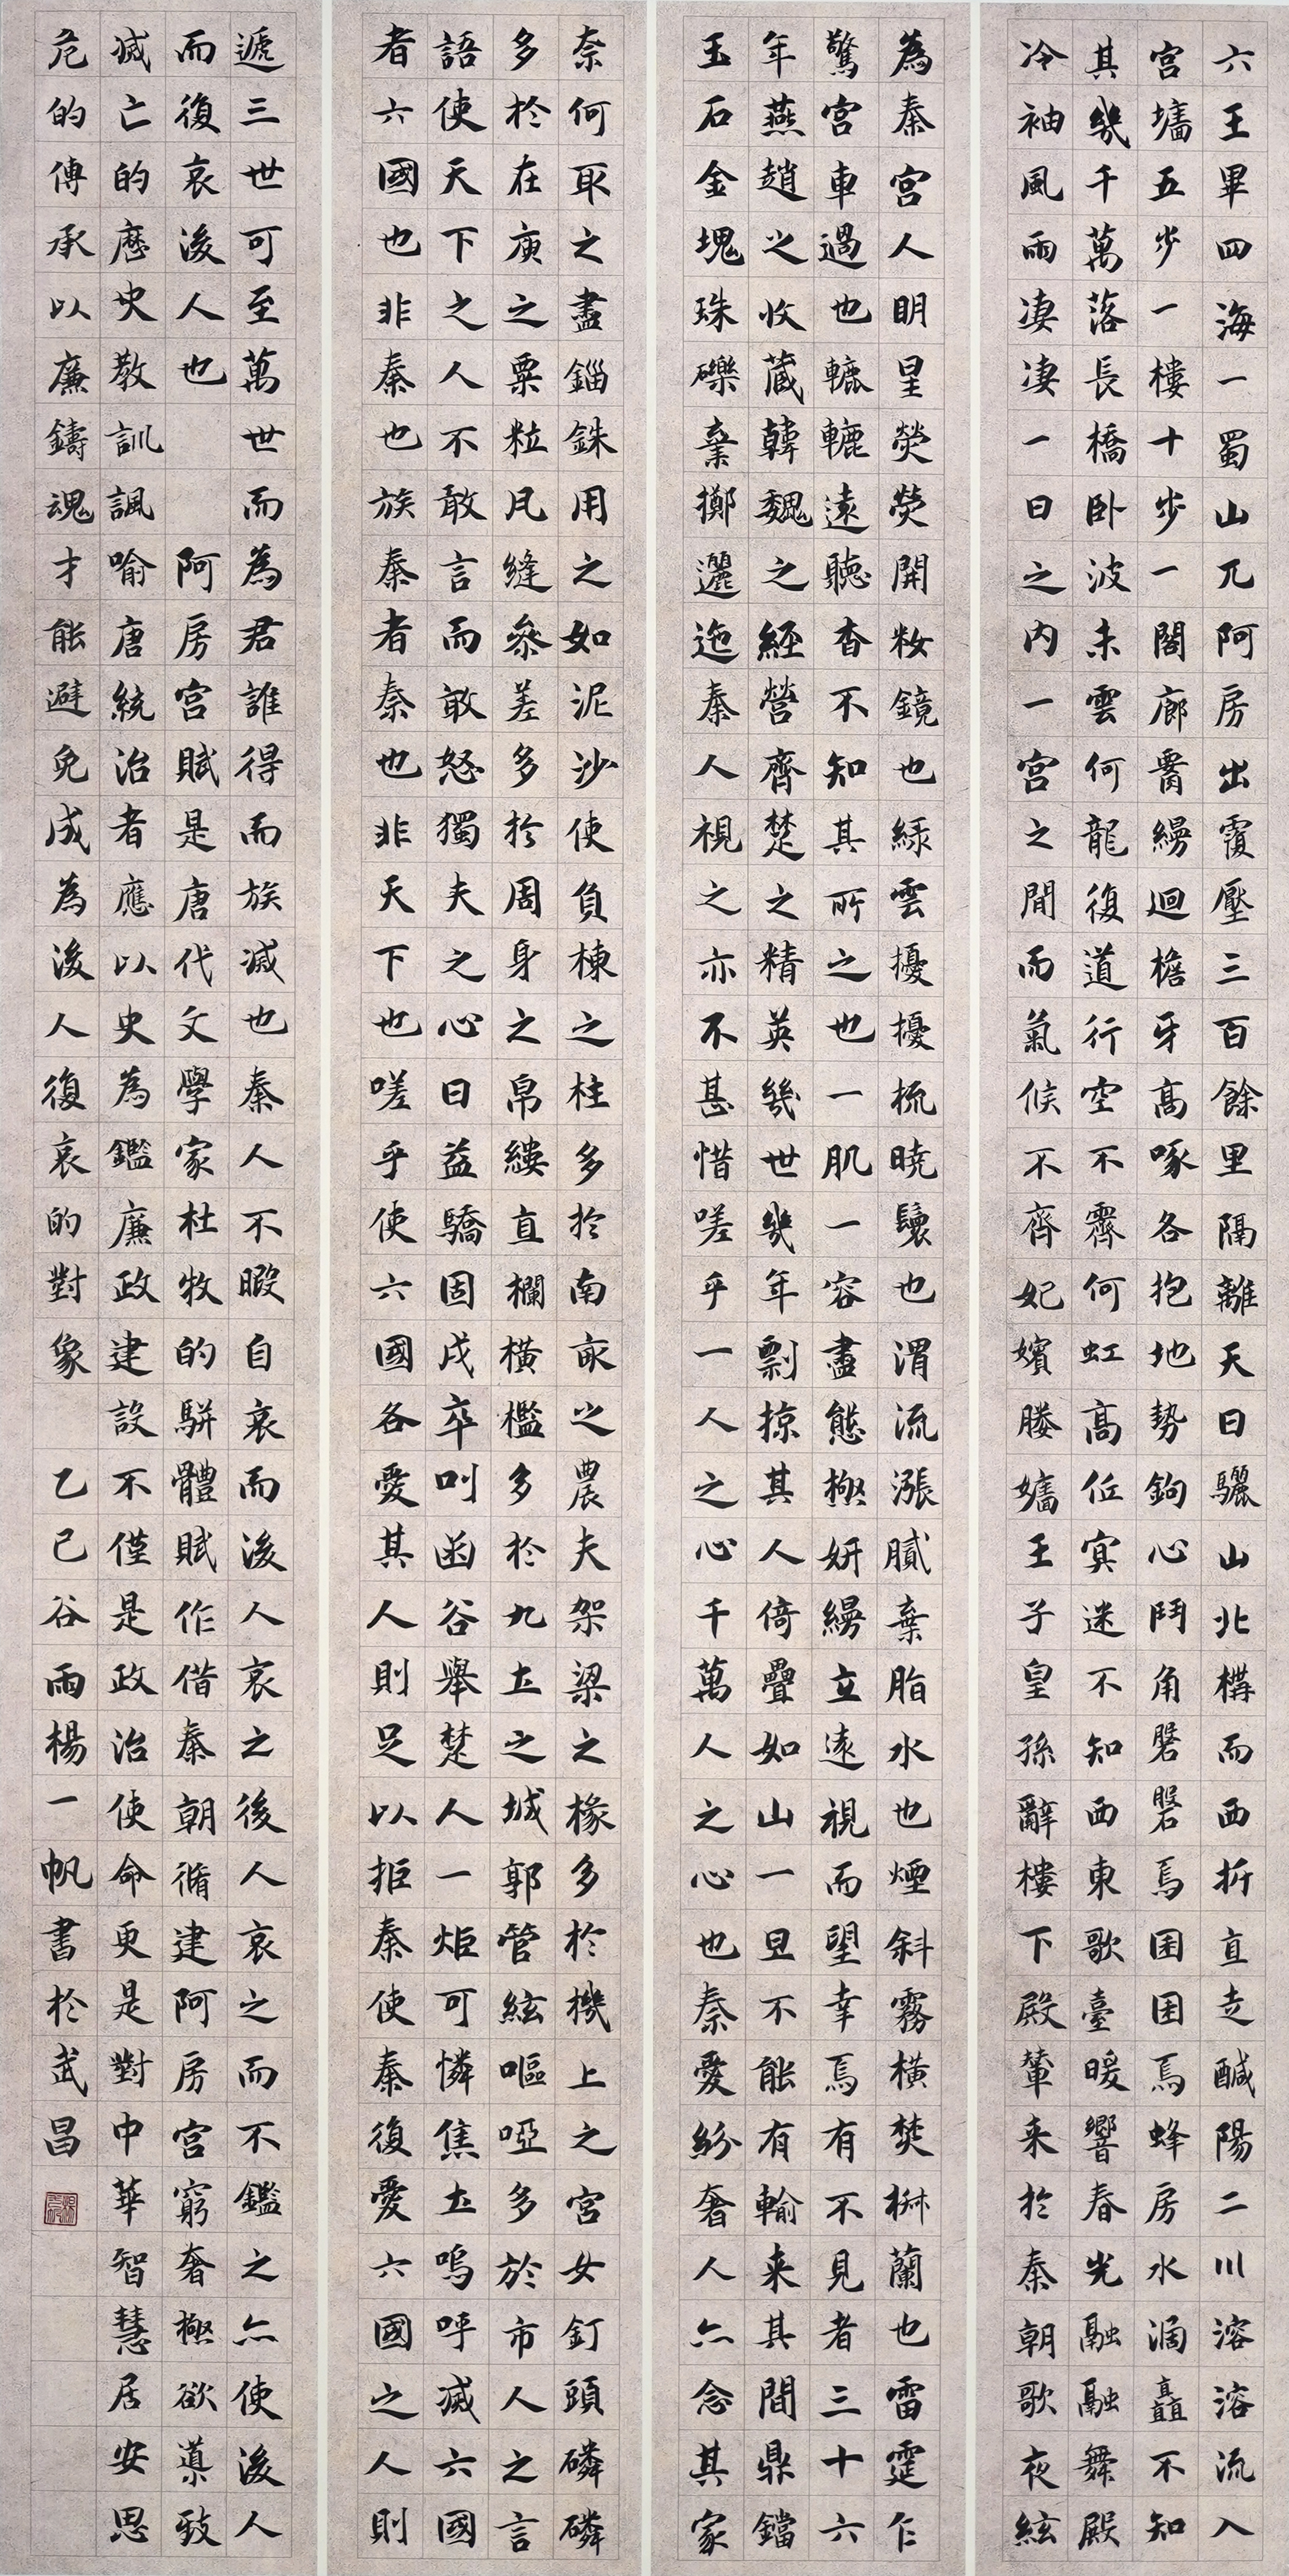 六王畢四海一蜀山兀阿房出覆壓三百餘里隔離天日驪山北構而西折直走醎陽二川溶溶流入
宮墻五步一樓十步一閣廊腰縵迴檐牙高啄各抱地勢鉤心鬥角磐磐焉囷囷焉蜂房水渦矗不知
其幾千萬落長橋臥波未雲何龍復道行空不霽何虹高低冥迷不知西東歌臺暖響春光融融舞殿
冷袖風雨凄凄一日之內一宮之間而氣候不齊妃嬪媵嬙王子皇孫辭樓下殿輦來於秦朝歌夜絃
為秦宮人明星熒熒開妝鏡也綠雲擾擾梳曉鬟也渭流漲膩棄脂水也煙斜霧橫焚椒蘭也雷霆乍
驚宮車過也轆轆遠聽杳不知其所之也一肌一容盡態極妍縵立遠視而望幸焉有不見者三十六
年燕趙之收藏韓魏之經營齊楚之精英幾世幾年剽掠其人倚疊如山一旦不能有輸來其間鼎鐺
玉石金塊珠礫棄擲邐迤秦人視之亦不甚惜嗟乎一人之心千萬人之心也秦愛紛奢人亦念其家
奈何取之盡錙銖用之如泥沙使負棟之柱多於南畝之農夫架梁之椽多於機上之宮女釘頭磷磷
多於在庾之粟粒瓦縫參差多於周身之帛縷直欄橫檻多於九土之城郭管絃嘔啞多於市人之言
語使天下之人不敢言而敢怒獨夫之心日益驕固戍卒叫函谷舉楚人一炬可憐焦土嗚呼滅六國
者六國也非秦也族秦者秦也非天下也嗟乎使六國各愛其人則足以拒秦使秦復愛六國之人則
遞三世可至萬世而為君誰得而族滅也秦人不暇自哀而後人哀之後人哀之而不鑑之亦使後人
而復哀後人也 阿房宮賦是唐代文學家杜牧的駢體賦作借秦朝脩建阿房宮窮奢極欲導致
滅亡的歷史教訓諷喻唐統治者應以史為鑑廉政建設不僅是政治使命更是對中華智慧居安思
危的傳承以廉鑄魂才能避免成為後人復哀的對象 乙巳谷雨楊一帆書於武昌